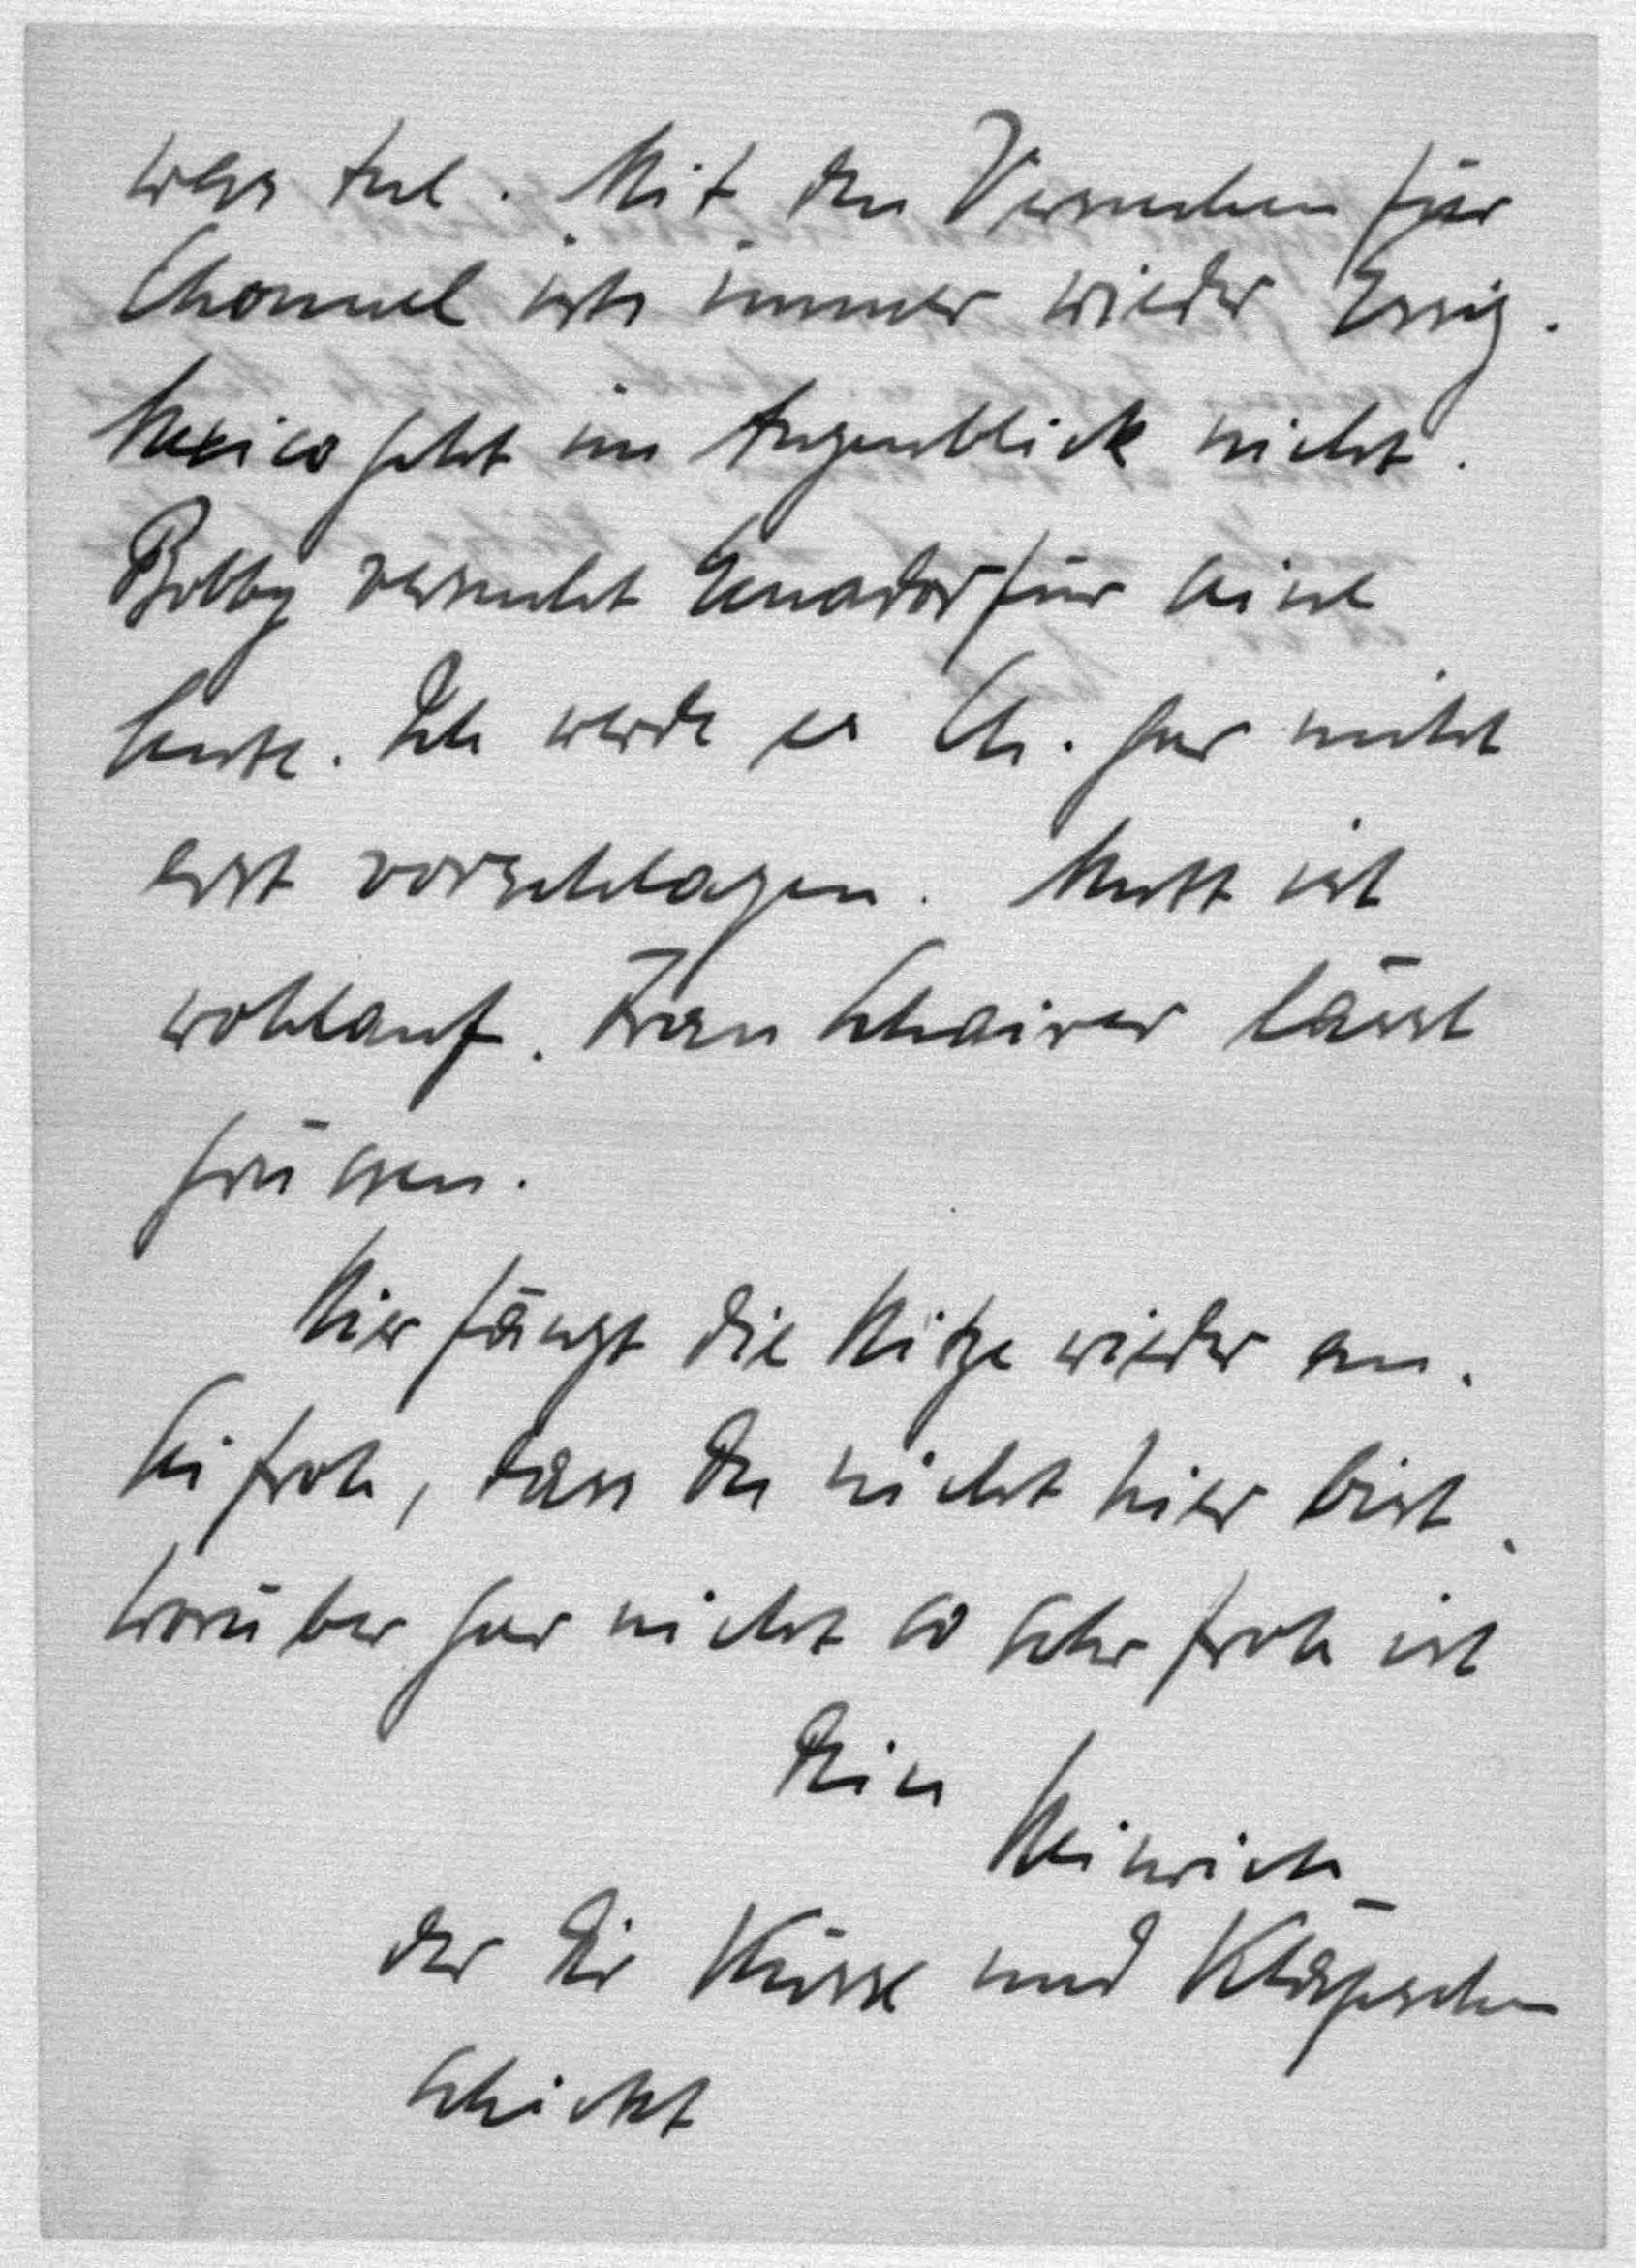 was tut. Mit den Versuchen für
Chomuel ists immer wieder Essig.
Mexico geht im Augenblick nicht.
Bobby versucht Ecuador für seine
Leute. Ich werde es Ch. gar nicht
erst vorschlagen. Mutt ist
wohlauf. Frau Schairer lässt
grüssen.
Hier fängt die Hitze wieder an.
Sei froh, dass Du nicht hier bist.
Worüber gar nicht so sehr froh ist
Dein
Heinrich
der Dir Küsse und Kläpschen
schickt